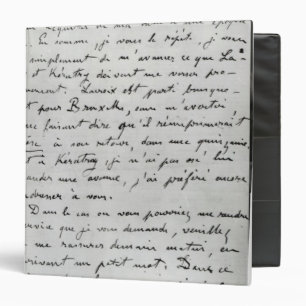 En somme, je vous le répète, je vous
simplement de m'avancer ce que La-
et Kératry doivent me verser pro-
Lacroix est parti brusque-
pour Bruxelles, sans m'avertir
me faisant dire qu'il réimprimerait
à son retour, dans une quinzaine,
à Kératry je n'ai pas osé lui
une avance, j'ai préféré encore
à vous.
Dans le cas où vous pourriez me rendre
service que je vous demande, veuillez
me rassurer demain matin, en
un petit mot. Dans ce